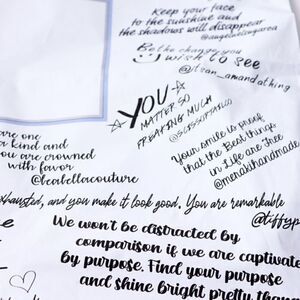 Keep your face
to the sunshine and
the shadows will disappear
Be the change you
wish to see
YOU
MATTER SO
FREAKING MUCH
are one
a kind and
you are crowned
with favor
@leabellacouture
Your smile is proof
that the Best things
in Life are Free
@merakihandmade
exhausted, and you make it look good. You are remarkable
We won't be distracted by
comparison if we are captivate
by purpose. Find your purpose
and shine bright pretty